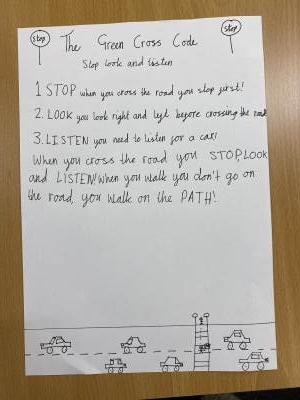 Stop
Stop
The Green Cross Code
Stop look and listen
1 STOP when you cross the road you stop first!
2. LOOK you look right and left before crossing the road
3. LISTEN you need to listen for a car!
When you cross the road you STOP,LOOK
and LISTEN! when you walk you don't go on
the road, you walk on the PATH!